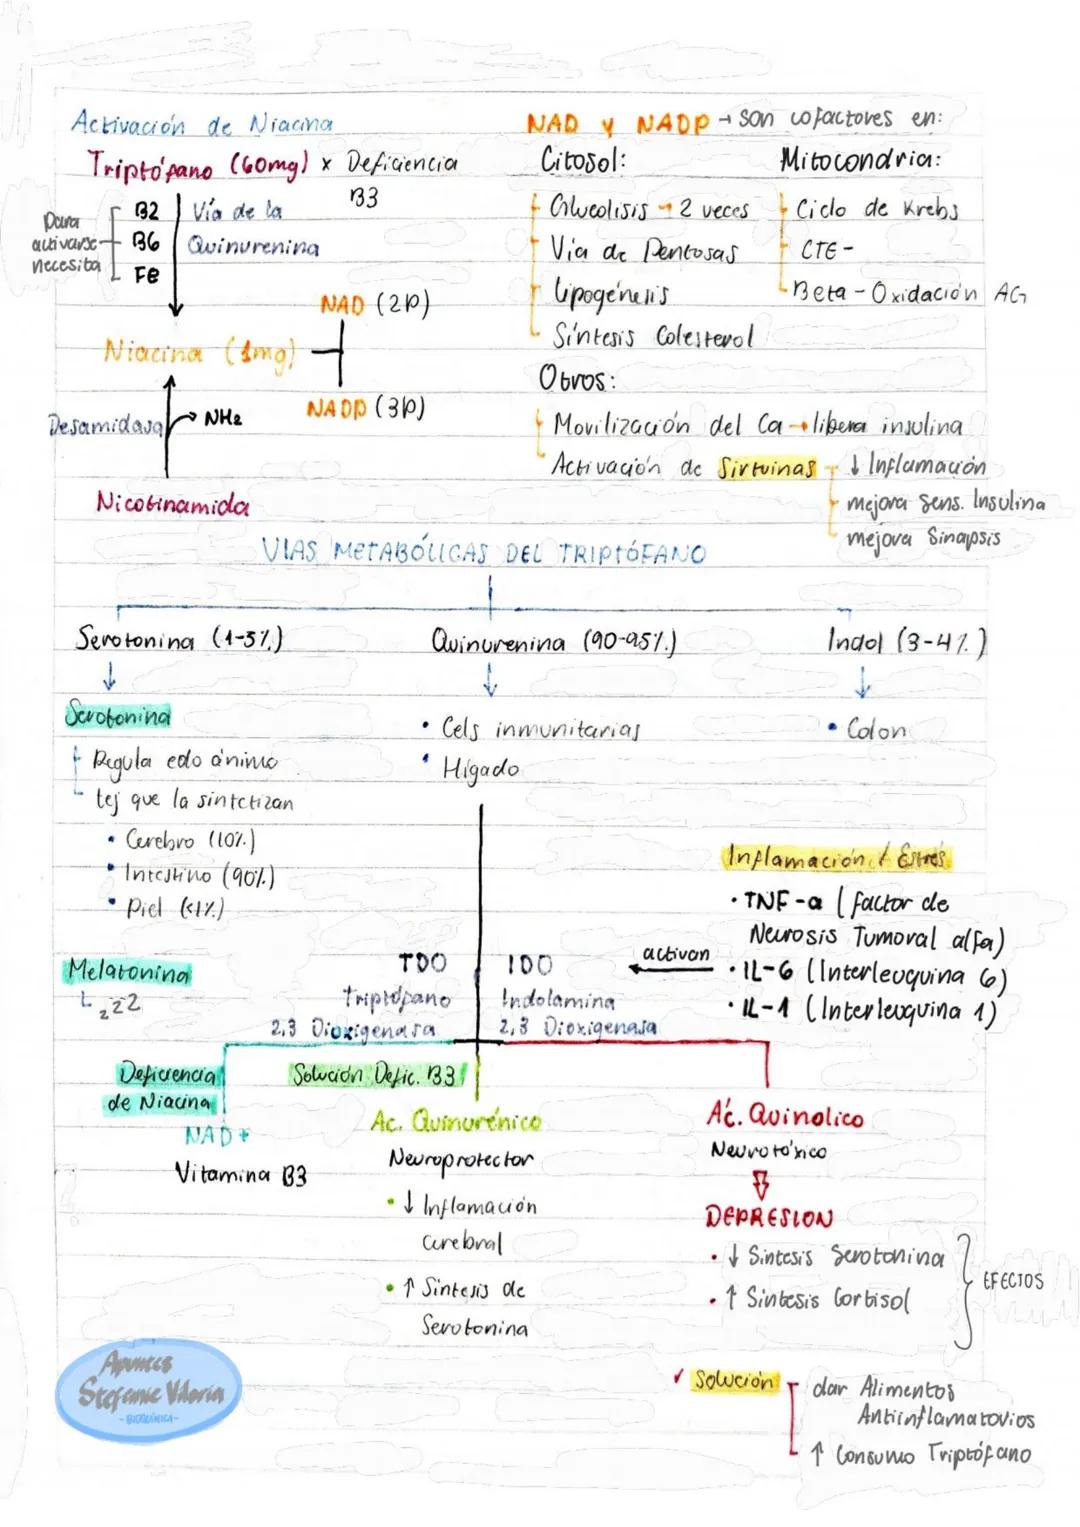 Activación de Niacina
Triptófano (60mg) x Deficiencia
B3
Para
activarse
necesita
B2
B6
Fe
Vía de la
Quinurenina
NAD (2P)
Niacina (1mg)
NADP (3P)
Desamidasa
NH2
Nicotinamida
NAD y NADP → son cofactores en:
Citosol:
Glucolisis → 2 veces
Vía de Pentosas
Lipogénesis
Síntesis Colesterol
Mitocondria:
Ciclo de Krebs
CTE -
Beta - Oxidación AG
Otros:
Movilización del Ca → libera insulina
Activación de Sirtuinas
↓ Inflamación
mejora Sens. Insulina
mejora Sinapsis
VIAS METABÓLICAS DEL TRIPTÓFANO
Serotonina (1-5%)
Quinurenina (90-95%)
Indol (3-4%)
Serotonina
Regula edo ánimo
tej que la sintetizan
• Cerebro (10%)
• Intestino (90%)
• Piel (<1%)
Melatonina
zzz
• Cels inmunitarias
• Hígado
• Colon
Inflamación / Estrés
• TNF-α (factor de
Necrosis Tumoral alfa)
• IL-6 (Interleuquina 6)
• IL-1 (Interleuquina 1)
activan
TDO
Triptófano
2,3 Dioxigenasa
IDO
Indolamina
2,3 Dioxigenasa
Deficiencia
de Niacina
NAD+
Vitamina B3
Solución Defic. B3
Ac. Quinurénico
Neuroprotector
• ↓ Inflamación
cerebral
• ↑ Síntesis de
Serotonina
Ác. Quinolico
Neurotóxico
DEPRESION
• ↓ Sintesis Serotonina
• ↑ Sintesis Cortisol
EFECTOS
✓ Solución
dar Alimentos
Antiinflamatorios
↑ Consumo Triptófano
Apuntes
Stefanie Viloria
- BIOQUÍMICA -